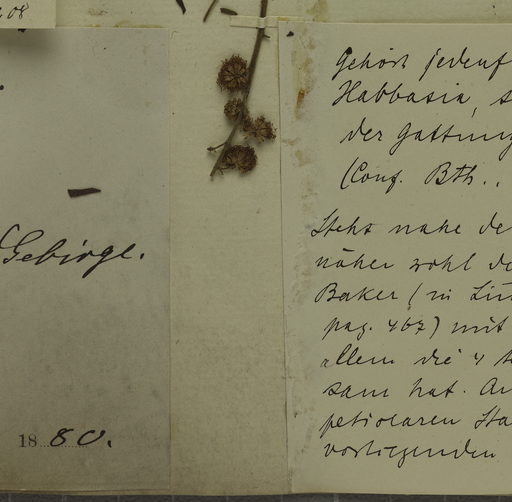 08
Gebirge.
1880.
Gehört jedenf
der Gattung
(Conf. Bth.,
Steht nahe de
näher wohl de
Baker (in
pag. 467) mit
allem die 4
sam hat. An
petiolaren Sta
vorliegenden